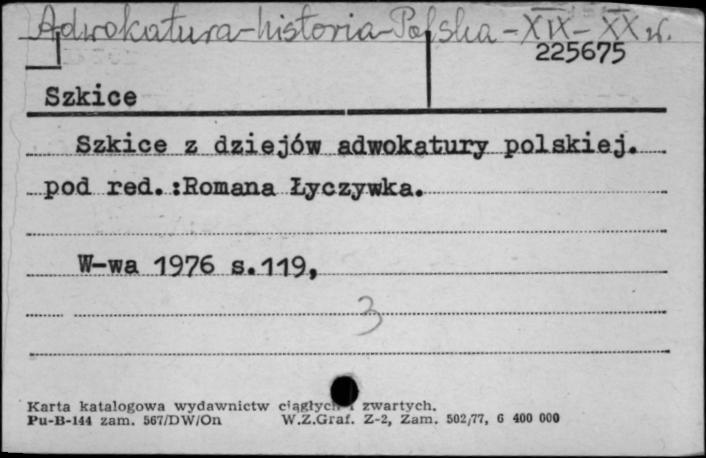 Adwokatura-historia-Polska-XIX-XX w.
225675
Szkice
Szkice z dziejów adwokatury polskiej.
pod red.:Romana Łyczywka.
W-wa 1976 s.119,
3
Karta katalogowa wydawnictw ciągłych i zwartych.
Pu-B-144 zam. 567/DW/On W.Z.Graf. Z-2, Zam. 502/77, 6 400 000